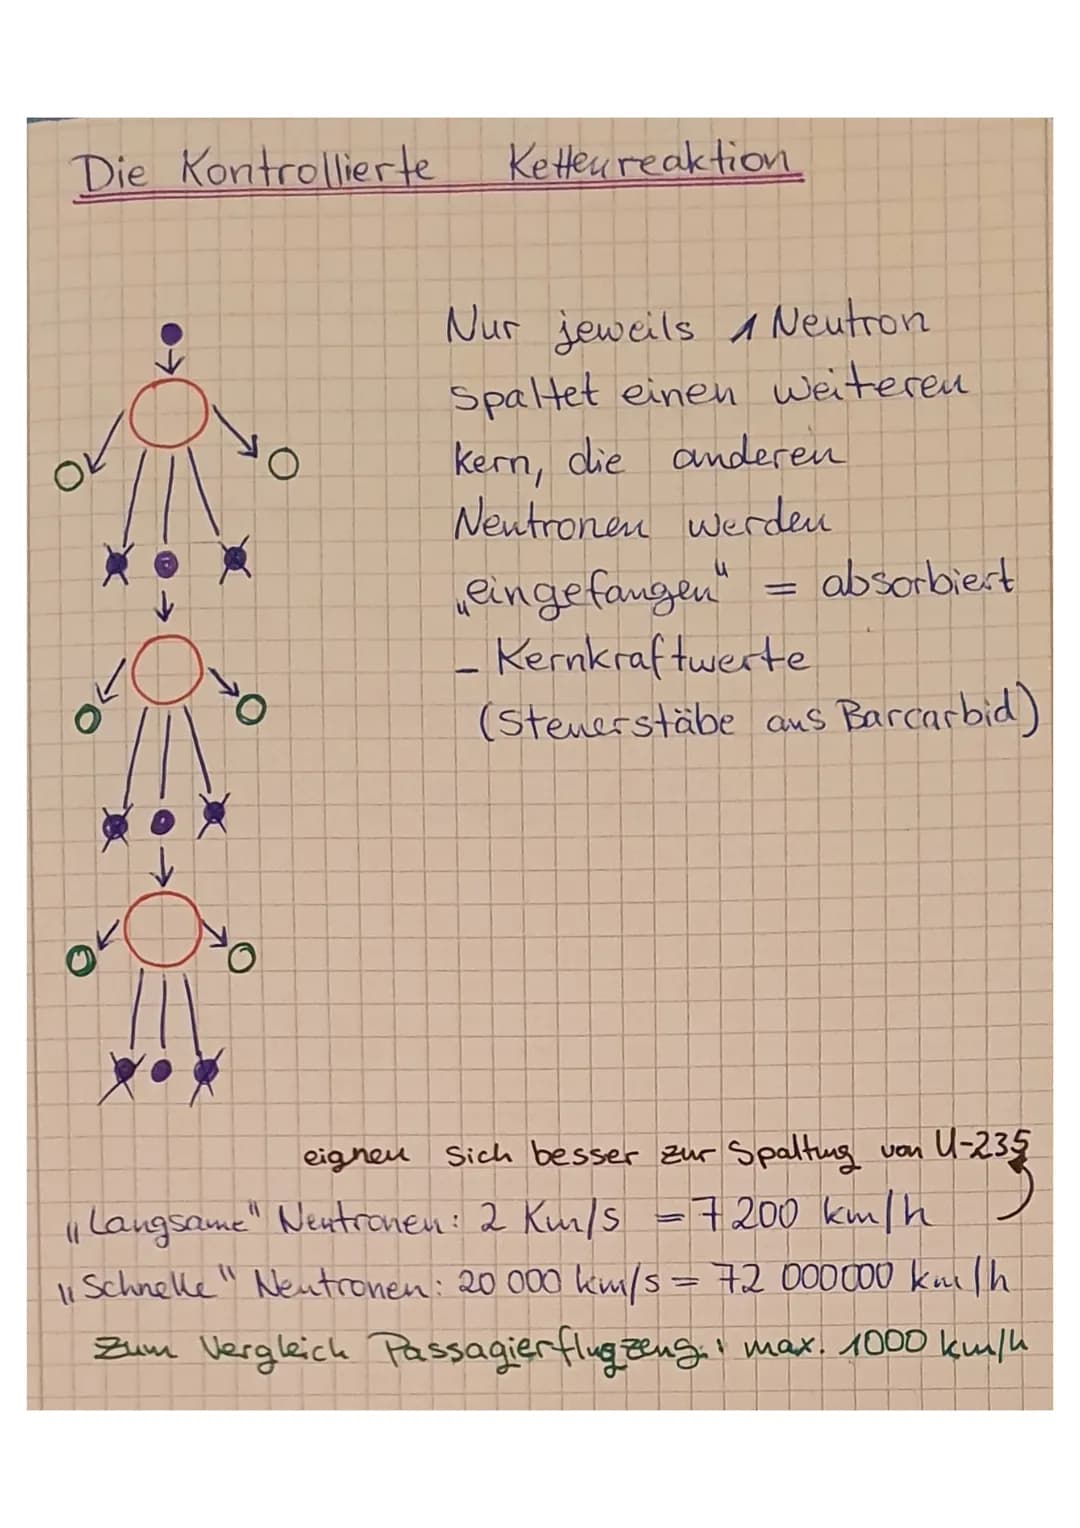 Die Kontrollierte Kettenreaktion
Nur jeweils 1 Neutron
spaltet einen weiteren
kern, die anderen
Neutronen werden
„eingefangen" = absorbiert
- Kernkraftwerte
(Steuerstäbe aus Barcarbid)
eignen sich besser zur Spaltung von U-235
"Langsame" Neutronen: 2 Km/s = 7 200 km/h
"Schnelle" Neutronen: 20 000 km/s = 72 000 000 km/h
Zum Vergleich Passagierflugzeug: max. 1000 km/h